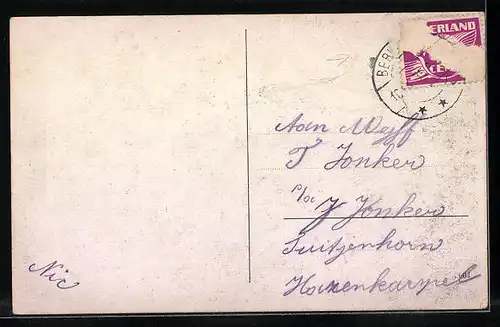 ERLAND
CE
BER
Aan Weff
T Jonker
p/a J Jonker
Tuitjenhorn
Harenkarspel
Nic